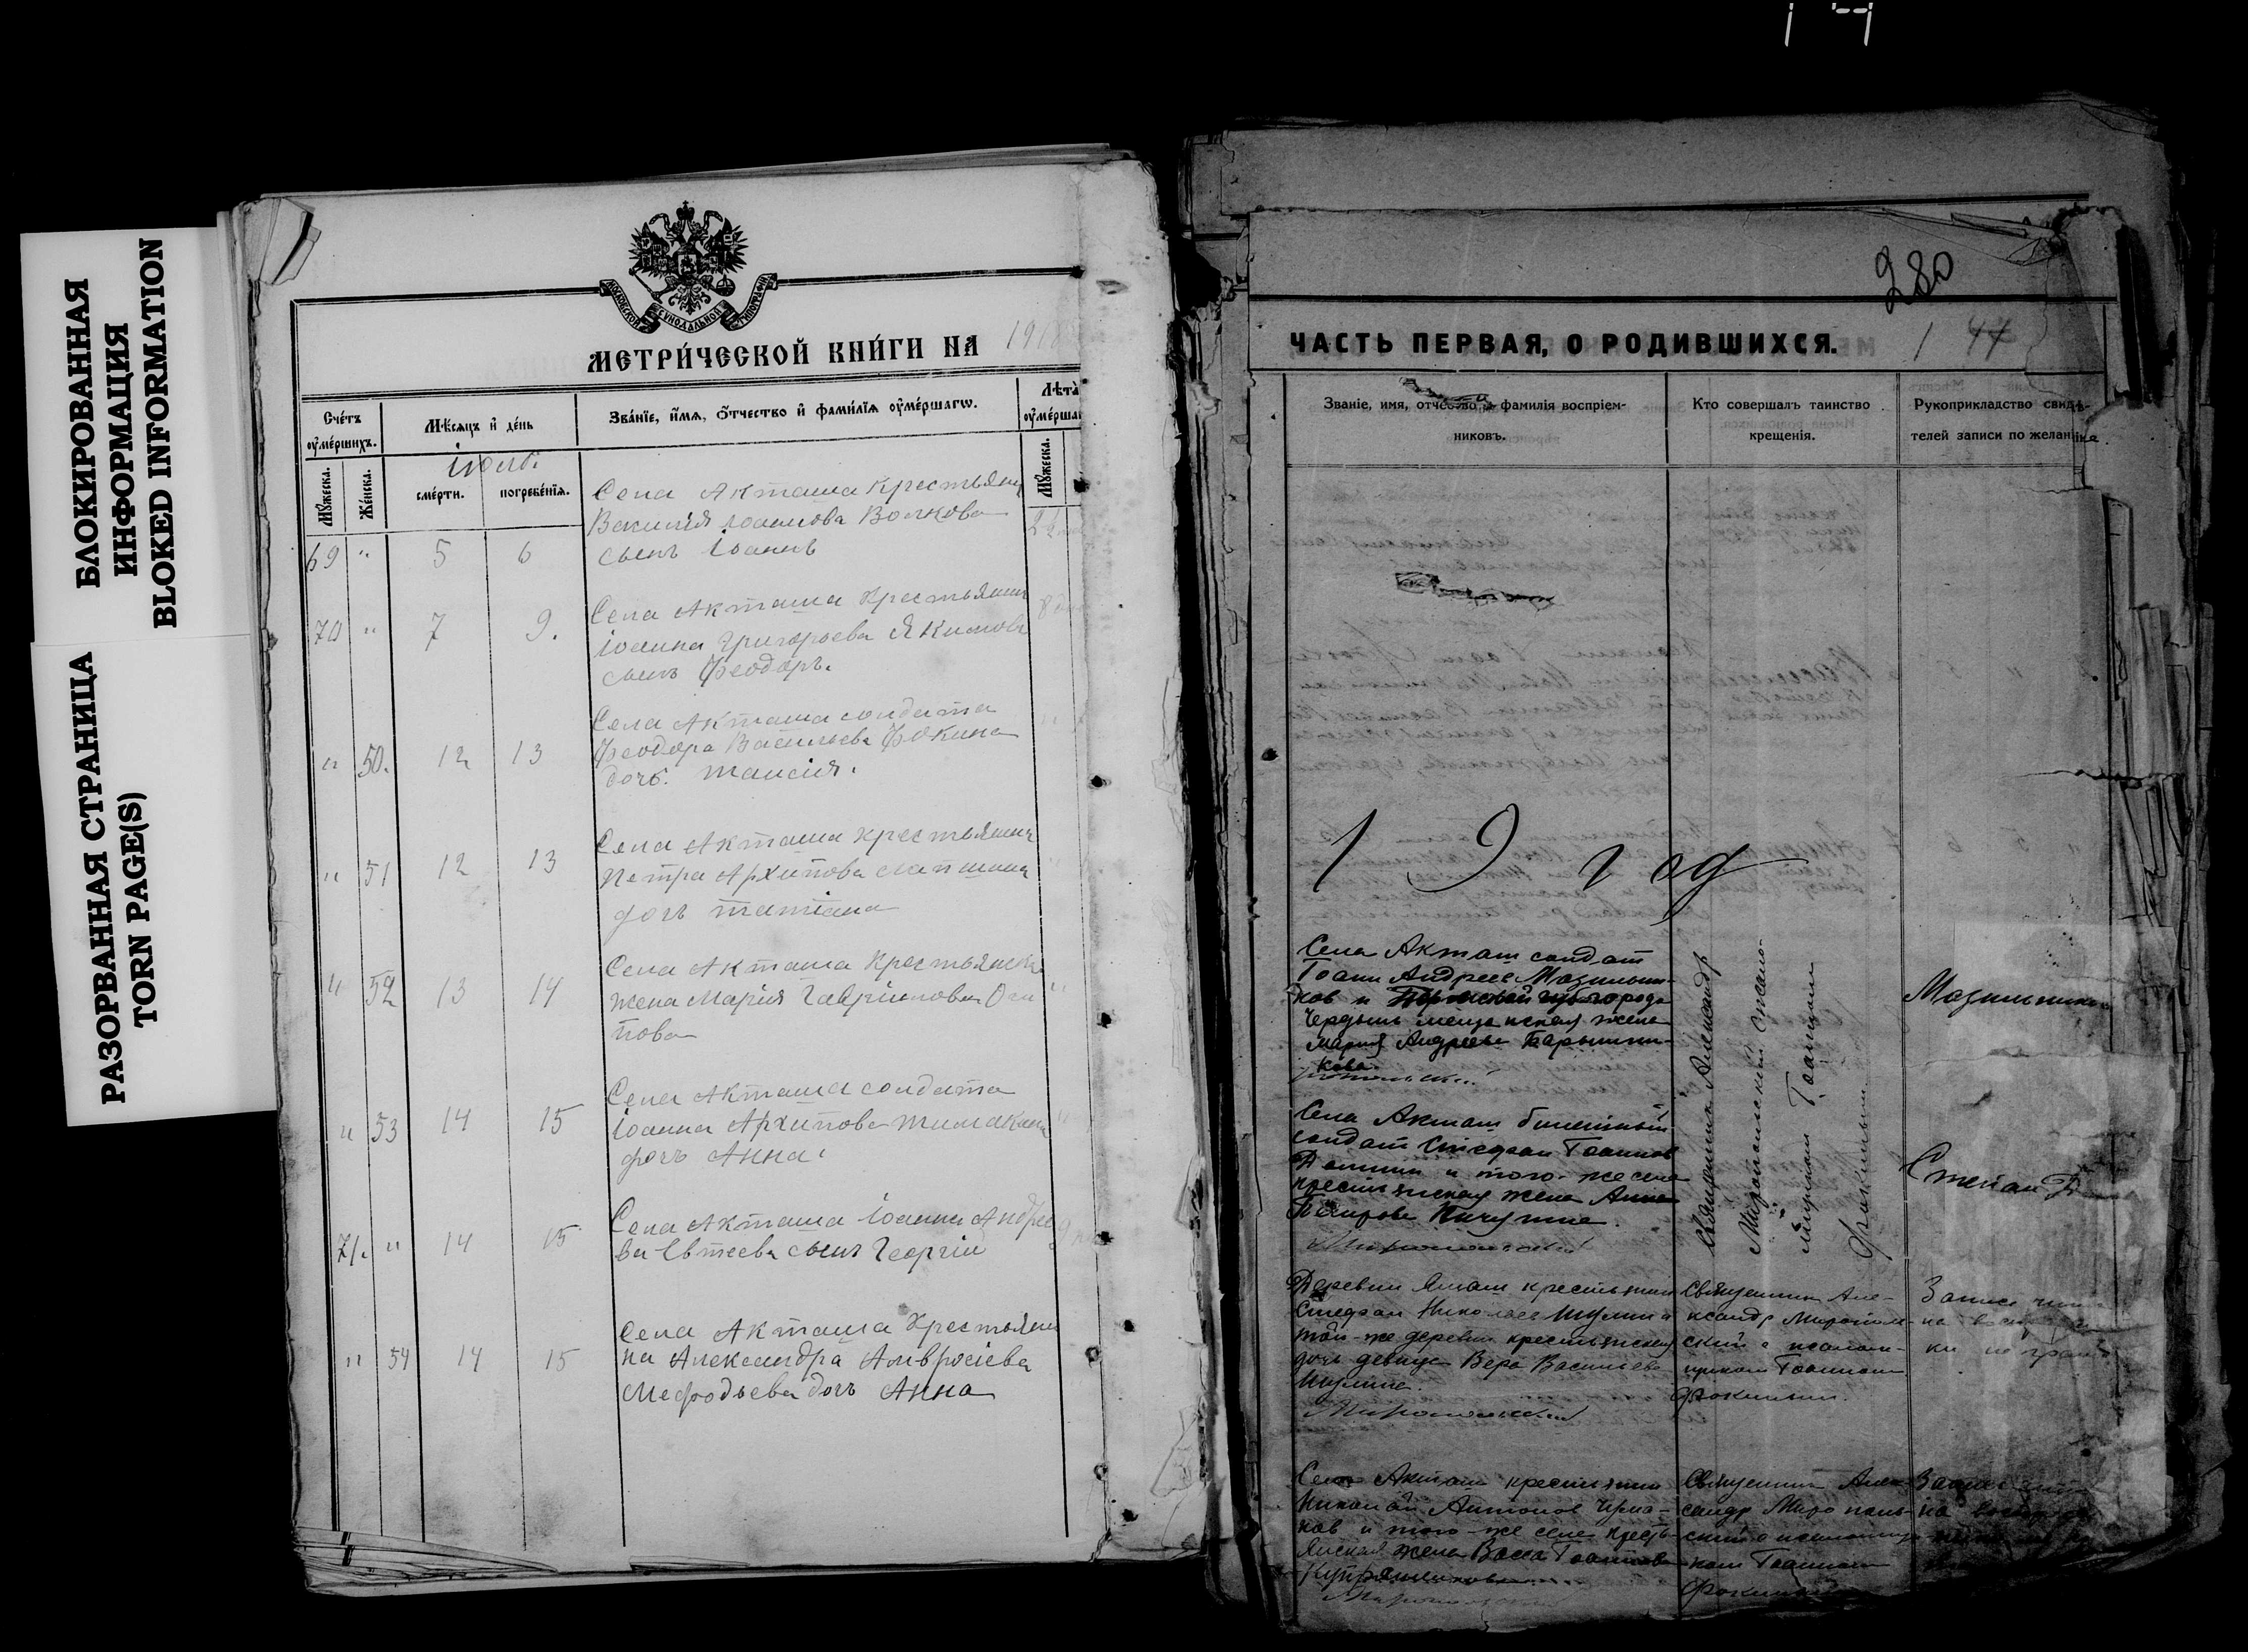 БЛОКИРОВАННАЯ
ИНФОРМАЦИЯ
BLOKED INFORMATION
РАЗОРВАННАЯ СТРАНИЦА
TORN PAGE(S)
МОСКОВСКОЙ СѴНОДАЛЬНОЙ ТИПОГРАФІИ
МЕТРИ́ЧЕСКОЙ КНИ́ГИ НА 191
Сче́тъ
ᲂу҆ме́ршихъ.
Мꙋ́жеска.
Же́нска.
Мѣ́сяцъ и҆ де́нь
іюль.
сме́рти.
погребе́нїѧ.
Зва́нїе, и҆́мѧ, ѻ҆́тчество и҆ фами́лїѧ ᲂу҆ме́ршагѡ.
Лѣта̀
ᲂу҆ме́рша
Мꙋ́жеска.
69 " 5 6
Села Акташа крестьянин
Василія Іоаннова Волкова
сынъ Іоаннъ
70 " 7 9.
Села Акташа крестьянин
Іоанна Григорьева Якимова
сынъ Феодоръ.
" 50. 12 13
Села Акташа солдата
Феодора Васильева Фокина
дочь. Таисія.
" 51 12 13
Села Акташа крестьянина
Петра Архипова Лапшина
дочь Татіана
" 52 13 14
Села Акташа крестьянска
жена Марія Гавріилова
пова
" 53 14 15
Села Акташа солдата
Іоанна Архипова Тимакина
дочь Анна.
71. " 14 15
Села Акташа Іоанна Андрее
ва Евтеева сынъ Георгій
" 54 14 15
Села Акташа крестьяни
на Александра Амвросіева
Мефодьева дочь Анна
280
ЧАСТЬ ПЕРВАЯ, О РОДИВШИХСЯ.
1 44
Званіе, имя, отчество и фамилія воспріем-
никовъ.
Кто совершалъ таинство
крещенія.
Рукоприкладство свидѣ-
телей записи по желанію.
1 9 год
Села Акташ солдат
Іоанн Андреев Мазильни-
ков и Пермской губ. города
Чердынь мещанская жена
Мария Андреева Барышни-
кова.
Священник Александр
Миропольский с псалом-
щиком Іоанном
Фокиным
Мазильник
Села Акташ билетный
солдат Стефан Іоаннов
и того-же села
крестьянская жена Анна
Пичугина.
Миропольский
Степан
Деревни крестьянин
Стефан Николаев Шулин и
той-же деревни крестьянская
дочь девица Вера Васильева
Шулина.
Миропольский
Священник Але-
ксандр Мирополь-
ский с псалом-
щиком Іоанном
Фокиным.
Запись
Села Акташ крестьянин
Николай Антонов Чума-
ков и того-же села кресть-
янская жена Васса Іоаннова
Миропольский
Священник Алек-
сандр Мирополь-
ский с псаломщи-
ком Іоанном
Фокиным